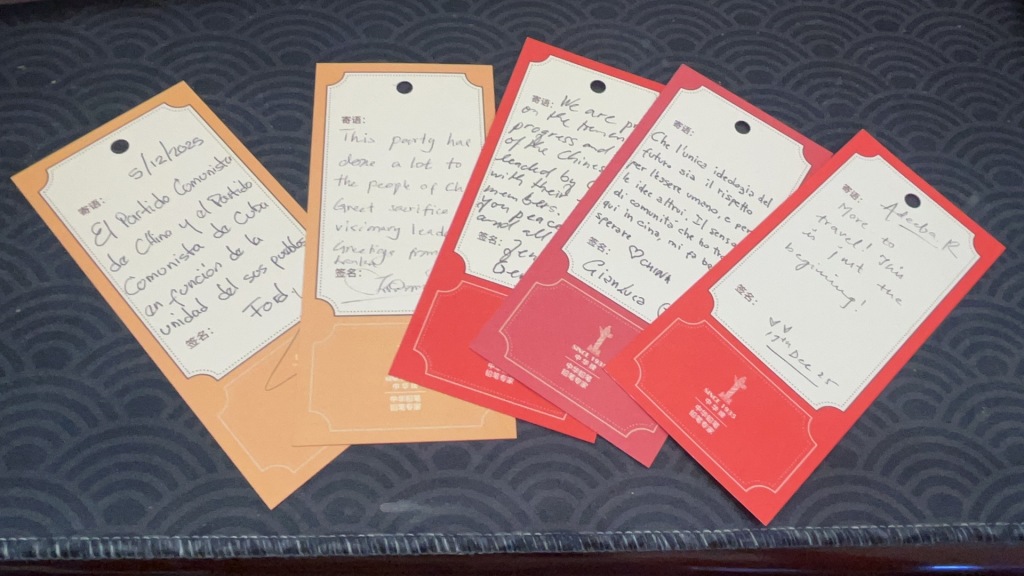 5/12/2025
寄语:
El Partido Comunista
de Chino y el Partido
Comunista de Cuba
en función de la
unidad del sos pueblos
签名:
寄语:
This party has
done a lot to
the people of Ch
Great sacrifice
visionary lead
Greetings from
签名:
寄语: We are pr
on the
progress and
of the Chinese
leaded by C
with these
members.
you peace
and all
签名:
寄语:
Che l'unica ideologia del
futuro sia il rispetto
per l'essere umano, e per
le idee altrui. Il senso
di comunità che ho tro
qui in cina mi fa be
sperare. ♡CHINA
签名:
Gianluca
SINCE
寄语: Adeeba R
More to
travel! This
is just the
beginning!
签名:
17th Dec 25
SINCE